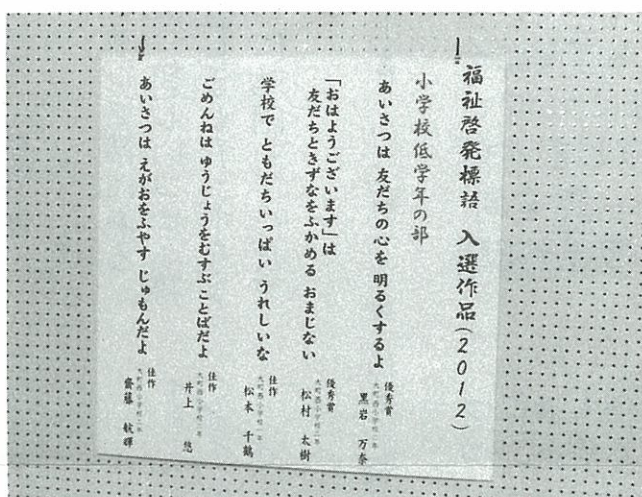 福祉啓発標語 入選作品(2012)
小学校低学年の部
あいさつは 友だちの心を 明るくするよ
優秀賞
黒岩 万奈
「おはようございます」は
友だちときずなをふかめる おまじない
優秀賞
松村 太樹
学校で ともだちいっぱい うれしいな
佳作
松本 千鶴
ごめんねは ゆうじょうをむすぶ ことばだよ
佳作
井上 悠
あいさつは えがおをふやす じゅもんだよ
佳作
齋藤 航輝